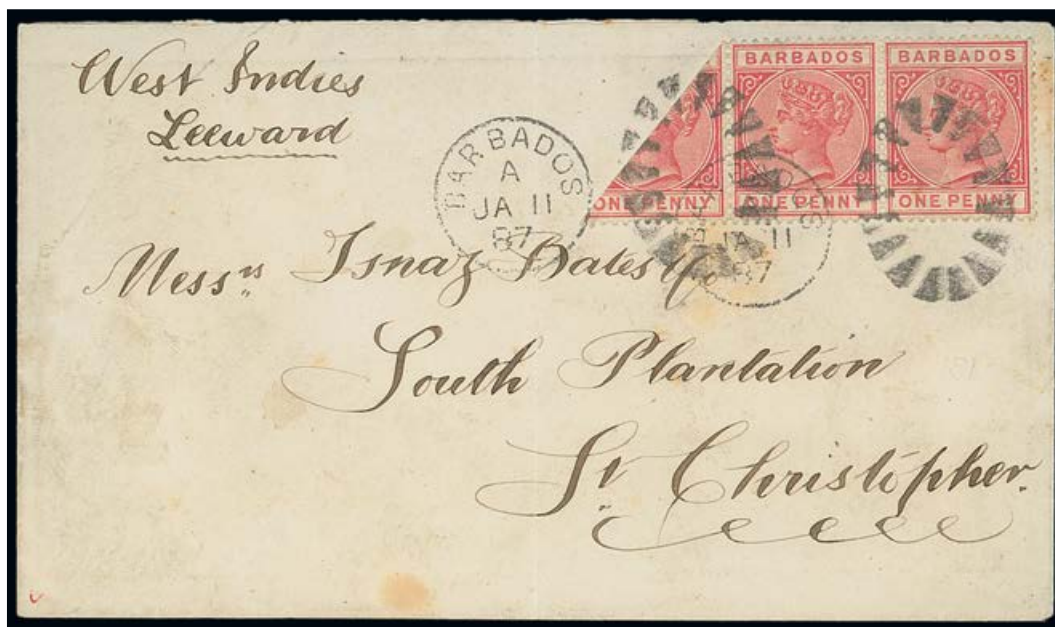 West Indies
Leeward
BARBADOS BARBADOS
ONE PENNY ONE PENNY ONE PENNY
BARBADOS
A
JA 11
87
JA 11
87
Messrs Isnaz Bates & Co
South Plantation
St Christopher.